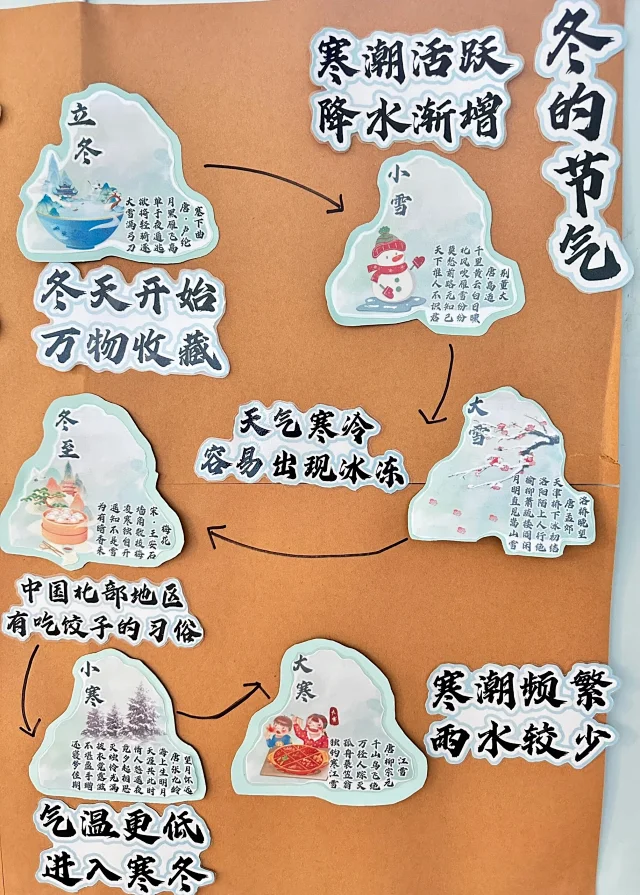 冬的节气
立冬
塞下曲
唐·卢纶
月黑雁飞高
单于夜遁逃
欲将轻骑逐
大雪满弓刀
冬天开始
万物收藏
寒潮活跃
降水渐增
小雪
别董大
唐 高适
千里黄云白日曛
北风吹雁雪纷纷
莫愁前路无知己
天下谁人不识君
大雪
洛桥晚望
唐 孟郊
天津桥下冰初结
洛阳陌上人行绝
榆柳萧疏楼阁闲
月明直见嵩山雪
天气寒冷
容易出现冰冻
冬至
梅花
宋 王安石
墙角数枝梅
凌寒独自开
遥知不是雪
为有暗香来
中国北部地区
有吃饺子的习俗
小寒
望月怀远
唐 张九龄
海上生明月
天涯共此时
情人怨遥夜
竟夕起相思
灭烛怜光满
披衣觉露滋
不堪盈手赠
还寝梦佳期
气温更低
进入寒冬
大寒
江雪
唐 柳宗元
千山鸟飞绝
万径人踪灭
孤舟蓑笠翁
独钓寒江雪
寒潮频繁
雨水较少